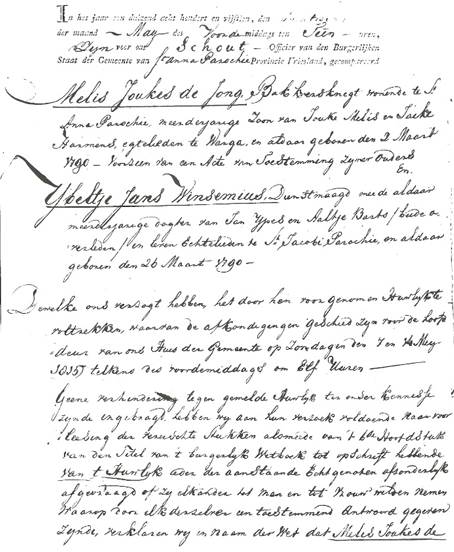 In het jaar een duizend acht honderd en vijftien, den
der maand May des Voorde middags ten Tien uren,
Zyn voor ons Schout Officier van den Burgerlijken
Staat der Gemeente van St Anna Parochie Provincie Vriesland, gecompareerd
Melis Joukes de Jong, Bakkersknegt wonende te St
Anna Parochie, meerderjarige Zoon van Jouke Melis en Tjetske
Harmens, egtelieden te Warga, en aldaar geboren den 2 Maart
1790 – Voorzien van een Acte van Toestemming zyner Ouders
En,
Ybeltje Jans Winsemius, Dienstmaagd mede aldaar
meerderjarige dogter van Jan Ypes en Aaltje Barts / beide o-
verleden / in leven Echtelieden te St Jacobi Parochie, en aldaar
geboren den 26 Maart 1790 –
Dewelke ons verzogt hebben, het door hun voorgenomen Huwlyk te
voltrekken, waarvan de afkondegingen geschied zyn voor de hoofd
deur van ons Huis der Gemeente op Zondagen den 7 en 14 May
1815 telkens des voordemiddags om Elf Uuren –
Geene verhindering tegen gemelde Huwlyk ter onser Kennesse
zynde ingebragt, hebben wy aan hun verzoek voldoende na voor
leesing der vereischte Stukken alsmede van 't 6de Hoofdstuk
van den Titel van 't burgerlyk Wetboek tot opschrift hebbende
van 't Huwlyk ieder der aanstaande Echtgenoten afsonderlyk
afgevraagd of zy elkander tot man en tot vrouw wilden nemen
Waarop door elk derselver een toestemmend Antwoord gegeven
zynde, verklaren wy in naam der Wet dat Melis Joukes de